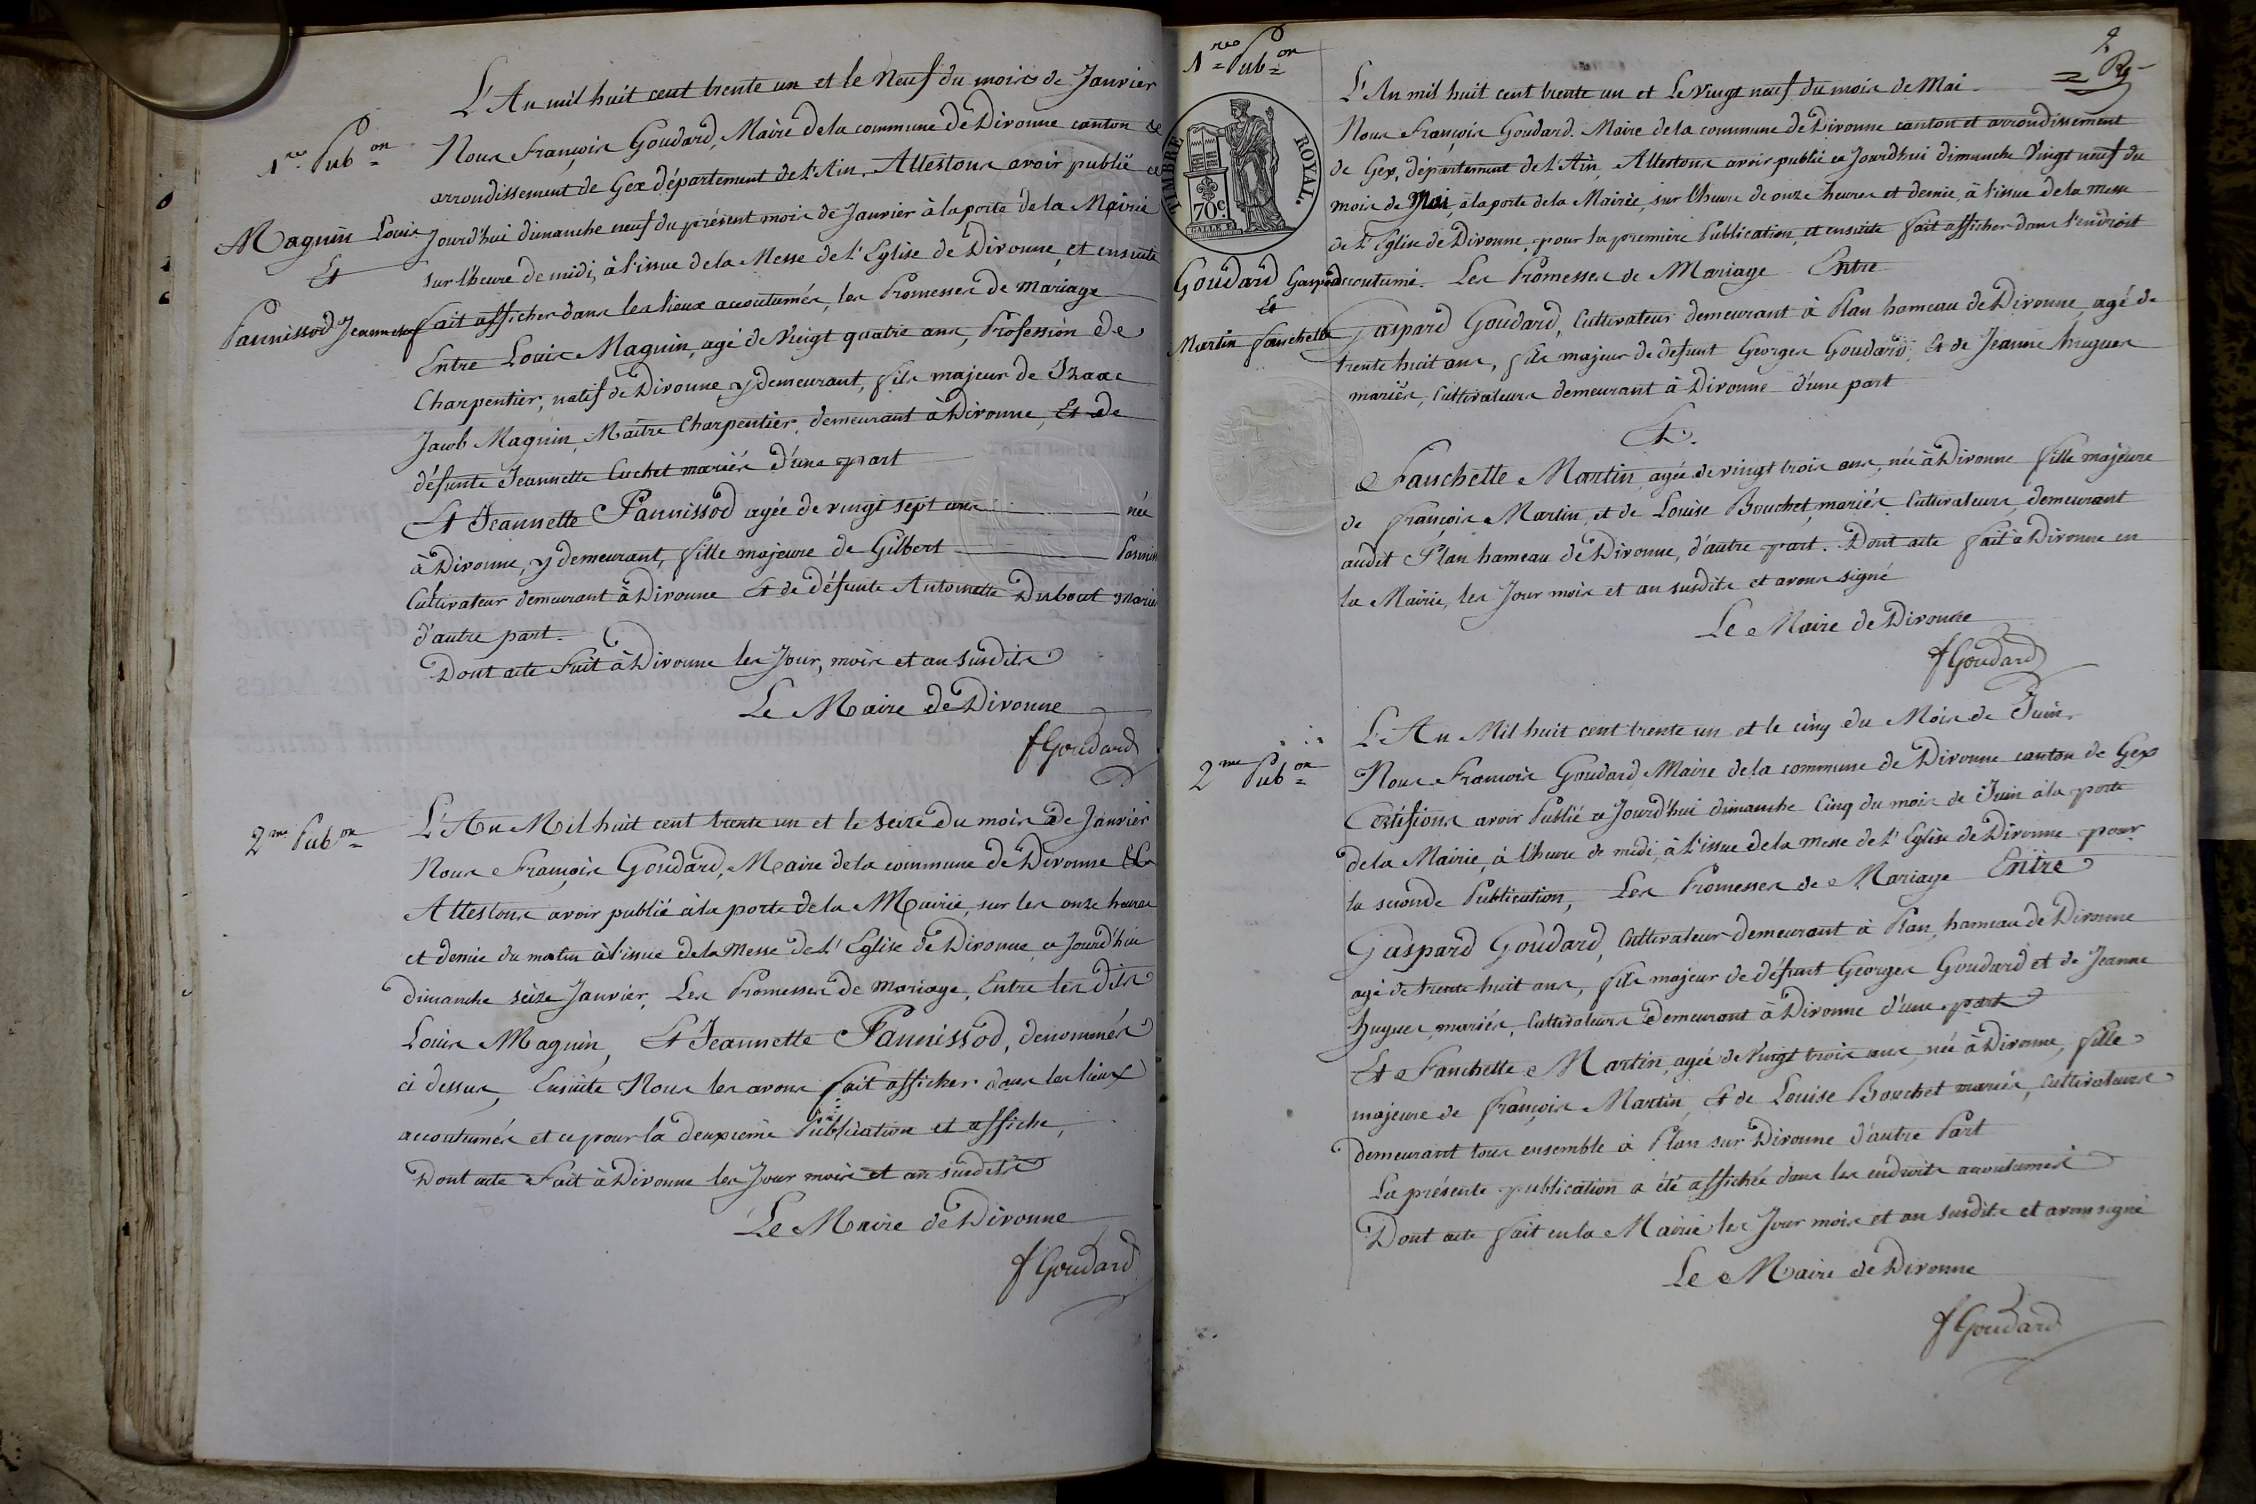 L'An mil huit cent trente un et le Neuf du mois de Janvier
1re Pubon
Nous François Goudard, Maire de la commune de Divonne canton et
arrondissement de Gex département de l'Ain, Attestons avoir publié ce
Jourd'hui dimanche neuf du présent mois de Janvier à la porte de la Mairie
Maguin Louis
Et
Pannissod Jeannette
sur l'heure de midi, à l'issue de la Messe de l'Eglise de Divonne, et ensuite
fait afficher dans les lieux accoutumés, les Promesses de Mariage
Entre Louis Maguin, agé de Vingt quatre ans, Profession de
Charpentier, natif de Divonne y demeurant, fils majeur de Izaac
Jacob Maguin, Maître Charpentier, demeurant à Divonne, Et de
défunte Jeannette Cuchet mariés d'une part
Et Jeannette Pannissod agée de vingt sept ans née
à Divonne, y demeurant, fille majeure de Gilbert Pannis
Cultivateur demeurant à Divonne Et de défunte Antoinette Dubout Marié
d'autre part.
Dont acte Fait à Divonne les Jour, mois et an susdits
Le Maire de Divonne
f Goudard
2me Pubon
L'An Mil huit cent trente un et le seize du mois de Janvier
Nous François Goudard, Maire de la commune de Divonne
Attestons avoir publié à la porte de la Mairie, sur les onze heures
et demie du matin à l'issue de la Messe de l'Eglise de Divonne, ce Jourd'hui
dimanche seize Janvier, Les Promesses de Mariage, Entre les dits
Louis Maguin, Et Jeannette Pannissod, denommés
ci dessus, Ensuite Nous les avons fait afficher dans les lieux
accoutumés et ce pour la deuxième Publication et affiche,
Dont acte Fait à Divonne les Jour mois et an susdits
Le Maire de Divonne
f Goudard
1re Pubon
2
TIMBRE ROYAL.
70c.
L'An mil huit cent trente un et Le Vingt neuf du mois de Mai
Nous François Goudard. Maire de la commune de Divonne canton et arrondissement
de Gex, département de l'Ain, Attestons avoir publié ce Jourd'hui dimanche Vingt neuf du
mois de Mai, à la porte de la Mairie, sur l'heure de onze heures et demie, à l'issue de la messe
de l'Eglise de Divonne, pour la première Publication, et ensuite fait afficher dans l'endroit
accoutumé. Les Promesses de Mariage Entre
Goudard Gaspard
Et
Martin Fanchette
Gaspard Goudard, Cultivateur demeurant à Plan hameau de Divonne, agé de
trente huit ans, fils majeur de défunt Georges Goudard, Et de Jeanne Hugues
mariés, Cultivateurs demeurant à Divonne d'une part
Et.
Fanchette Martin, agée de vingt trois ans, née à Divonne fille majeure
de françois Martin, et de Louise Bouchet, mariés Cultivateurs, demeurant
audit Plan hameau de Divonne, d'autre part. Dont acte fait à Divonne en
la Mairie, les Jour mois et an susdits et avons signé
Le Maire de Divonne
f Goudard
2me Pubon
L'An Mil huit cent trente un et le cinq du Mois de Juin.
Nous François Goudard, Maire de la commune de Divonne canton de Gex
Certifions avoir Publié ce Jourd'hui dimanche Cinq du mois de Juin à la porte
de la Mairie, à l'heure de midi, à l'issue de la messe de l'Eglise de Divonne pour
la seconde Publication, Les Promesses de Mariage Entre
Gaspard Goudard, Cultivateur demeurant à Plan, hameau de Divonne
agé de trente huit ans, fils majeur de défunt Georges Goudard et de Jeanne
hugues, mariés, Cultivateurs demeurant à Divonne d'une part
Et Fanchette Martin agée de Vingt trois ans, née à Divonne, fille
majeure de françois Martin, Et de Louise Bouchet mariés, Cultivateurs
demeurant tous ensemble à Plan sur Divonne d'autre Part
La présente publication a été affichée dans les endroits accoutumés
Dont acte fait en la Mairie les Jour mois et an susdits et avons signé
Le Maire de Divonne
f Goudard